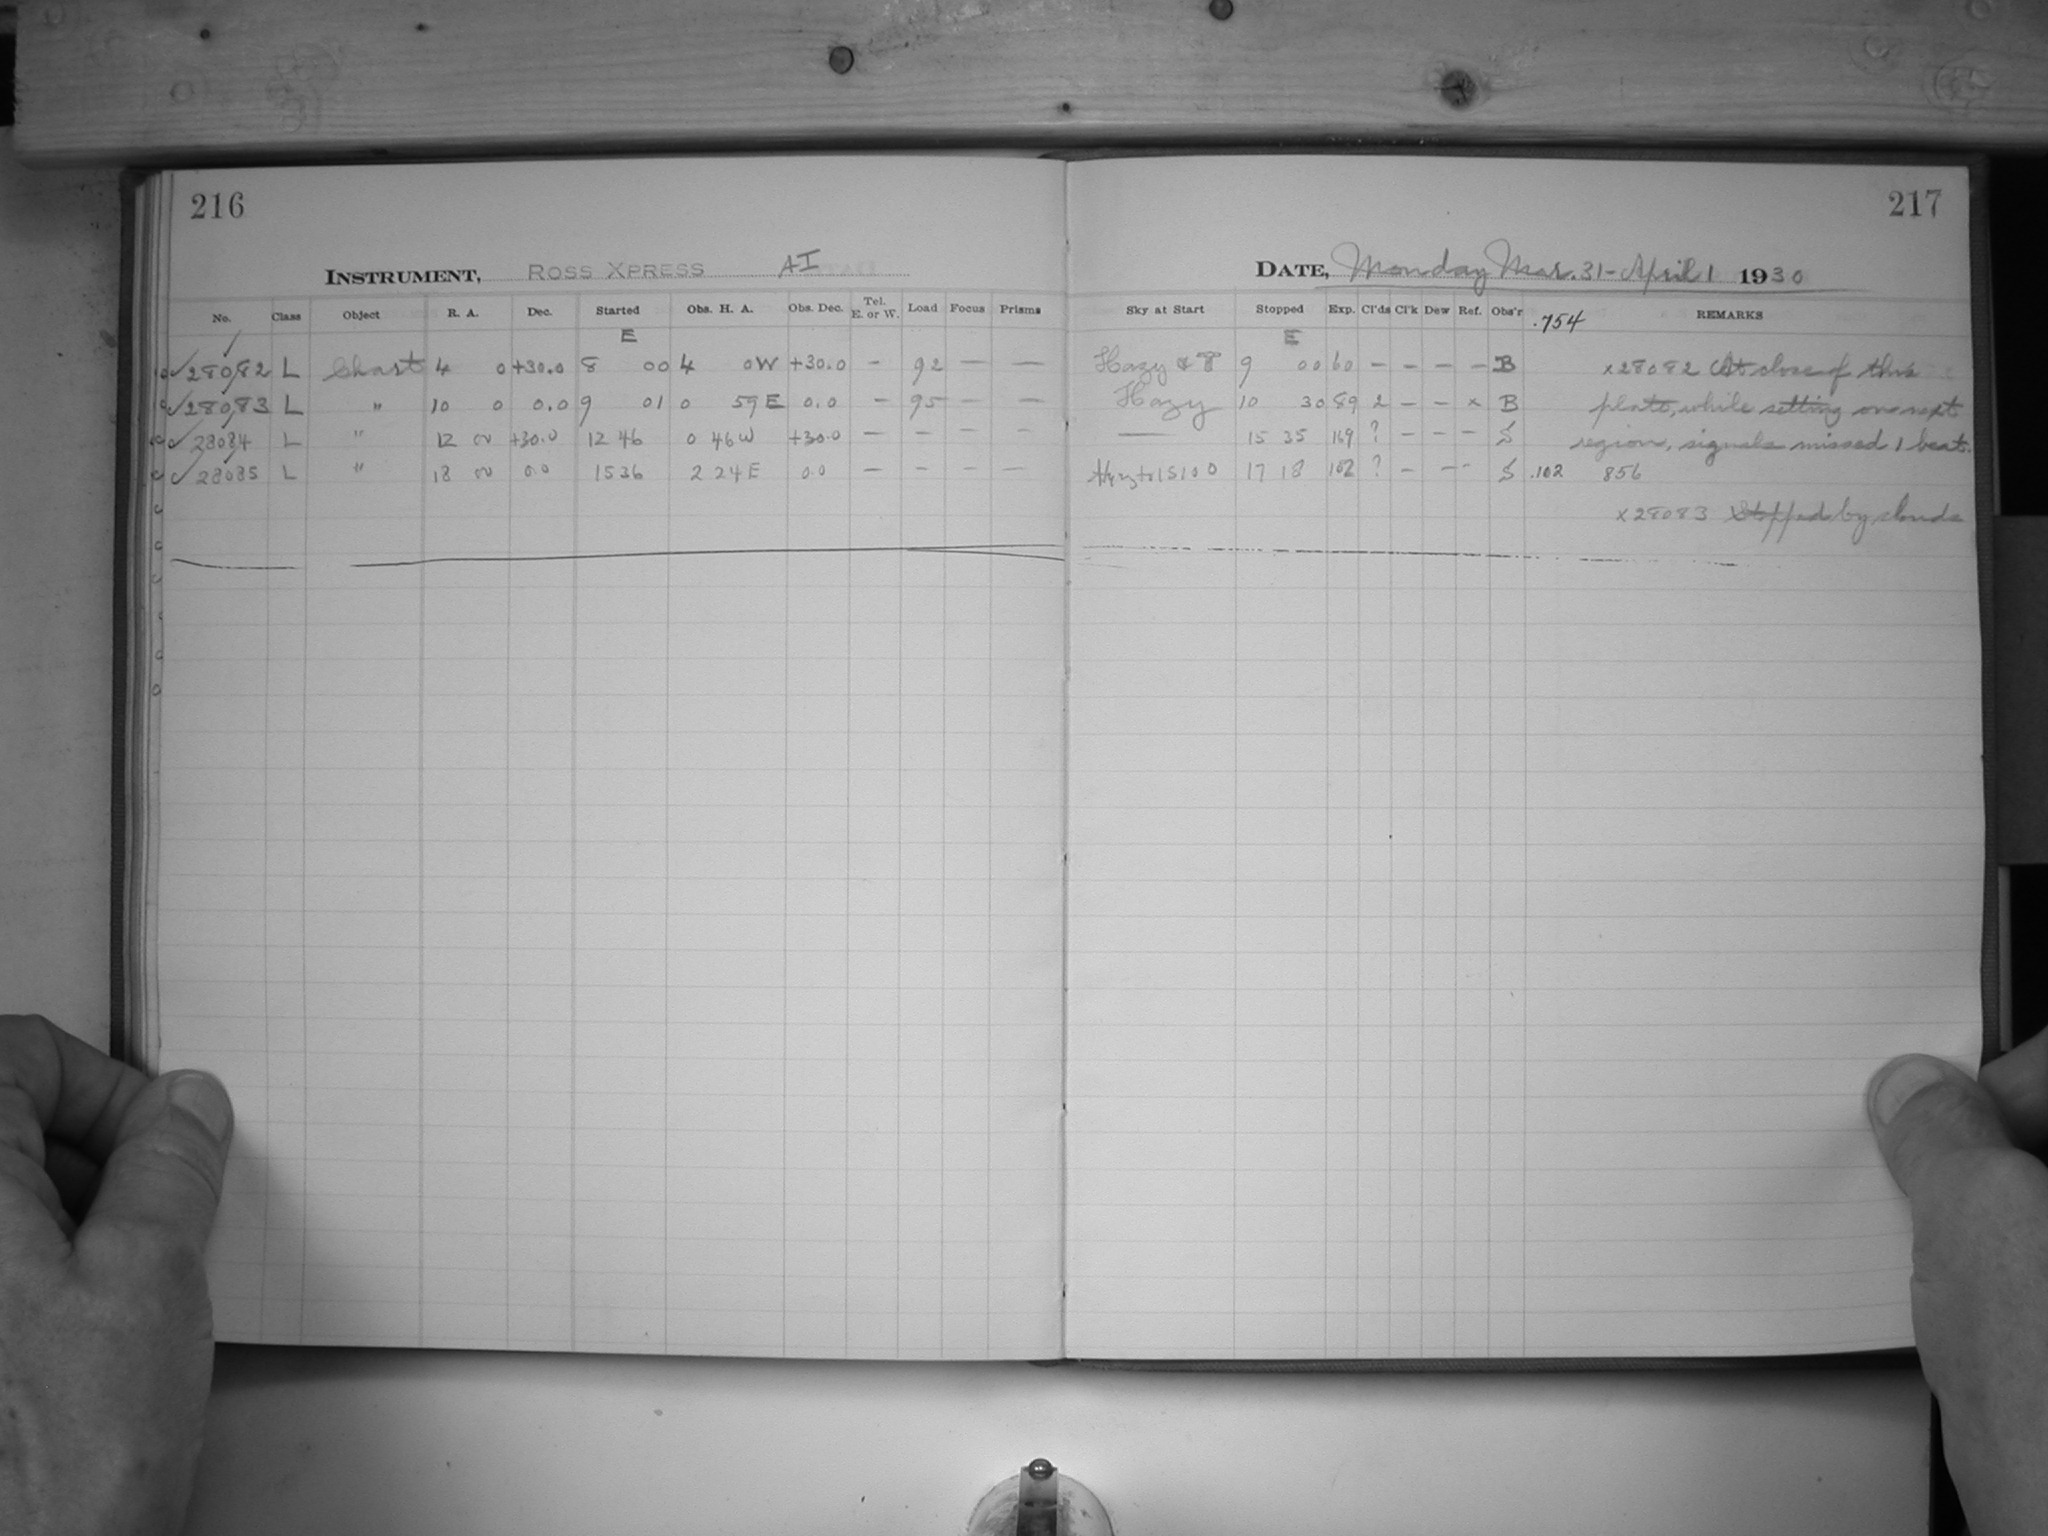 216
INSTRUMENT, ROSS XPRESS AI
No. Class Object R. A. Dec. Started Obs. H. A. Obs. Dec. Tel. E. or W. Load Focus Prisms
E
✓28082 L Chart 4 0 +30.0 8 00 4 0W +30.0 – 92 — —
✓28083 L " 10 0 0.0 9 01 0 59E 0.0 – 95 – —
✓28084 L " 12 +30.0 12 46 0 46W +30.0 – – – –
✓28085 L " 18 0.0 15 36 2 24E 0.0 – – – –
217
DATE, Monday Mar. 31 – April 1 1930
Sky at Start Stopped Exp. Cl'ds Cl'k Dew Ref. Obs'r .754 REMARKS
E
Hazy & 9 00 60 – – – – B x28082 At close of this
Hazy 10 30 89 2 – – x B plate, while setting on next
— 15 35 169 ? – – – S region, signals missed 1 beat.
15 100 17 18 102 ? – – – S .102 856
x28083 Stopped by clouds